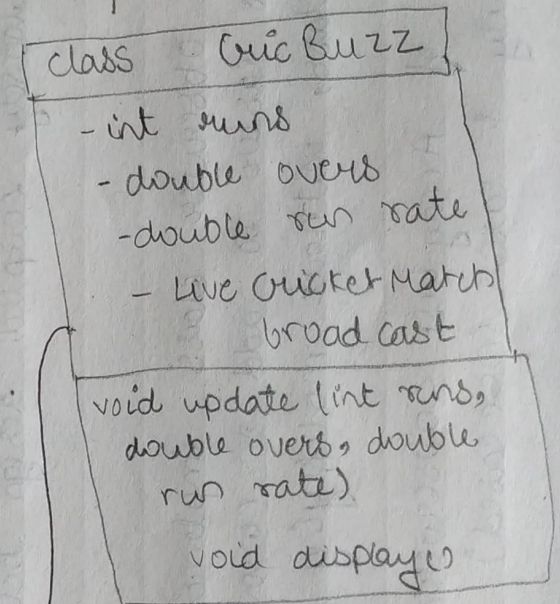 class CricBuzz
- int runs
- double overs
- double run rate
- Live Cricket Match
broad cast
void update (int runs,
double overs, double
run rate)
void display()